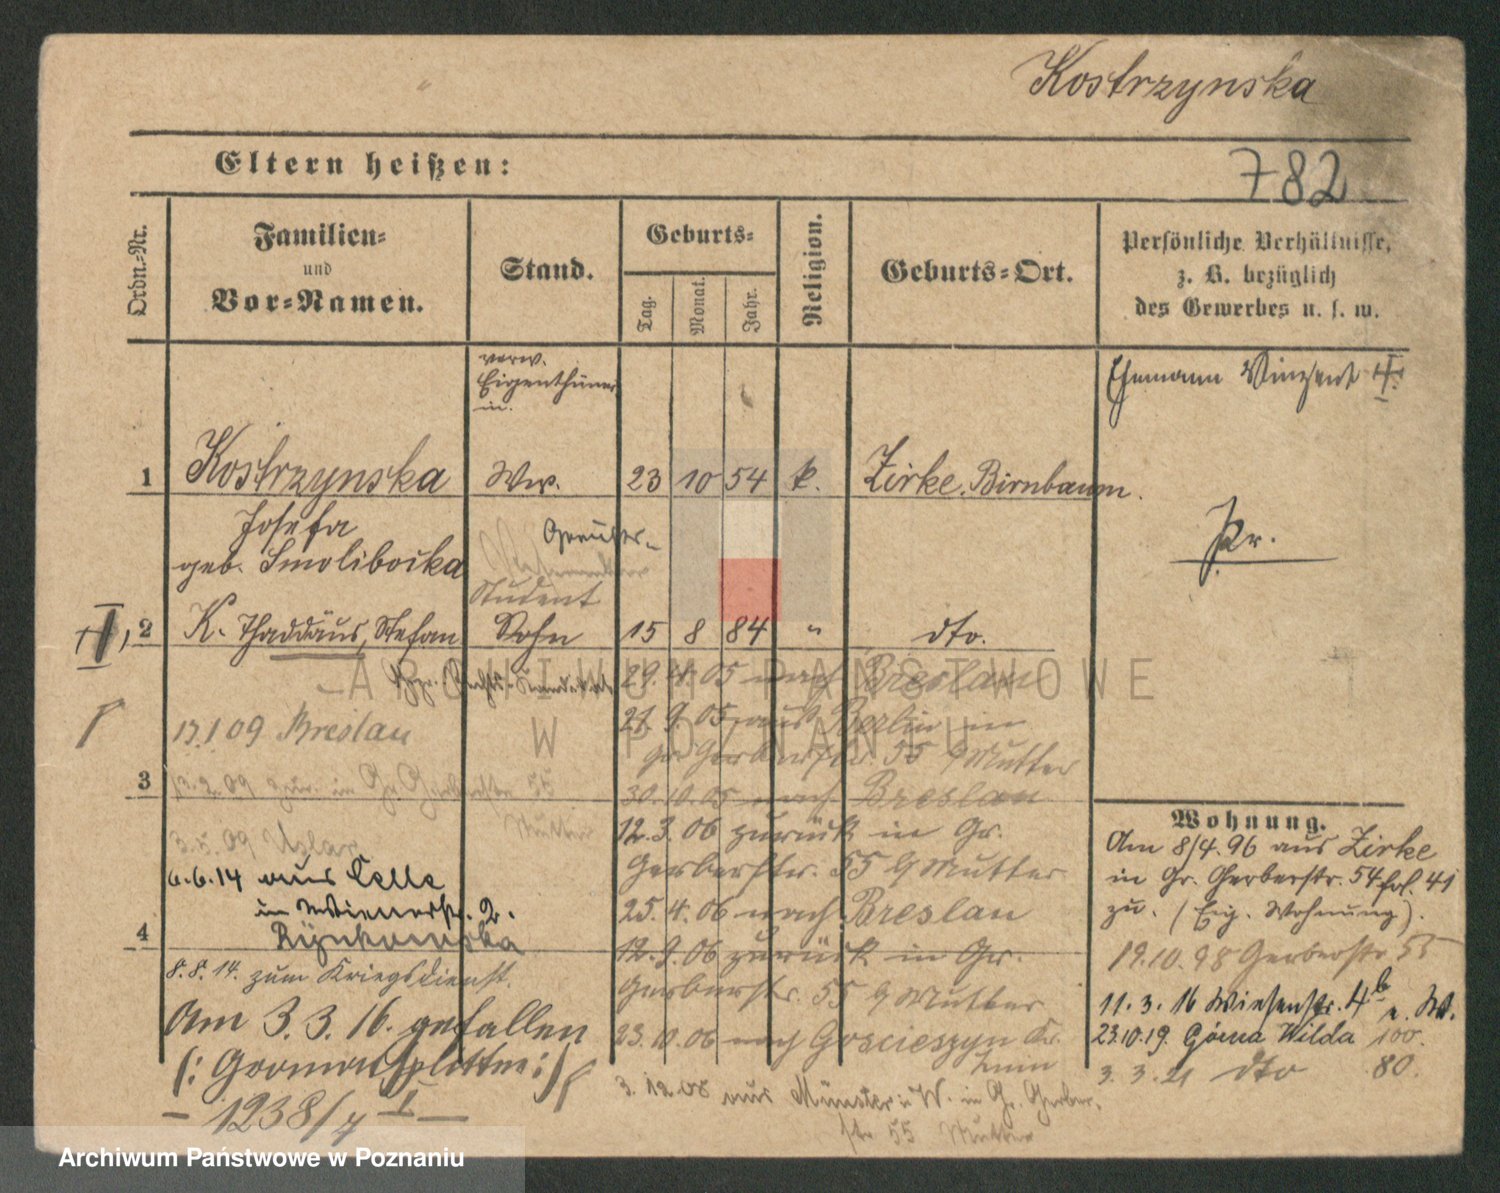 Kostrzynska
Eltern heißen:
782
Ordn.-Nr.
Familien-
und
Vor-Namen.
Stand.
Geburts-
Tag.
Monat.
Jahr.
Religion.
Geburts-Ort.
Persönliche Verhältnisse,
z. B. bezüglich
des Gewerbes u. s. w.
verw.
Eigenthümer
in.
Ehemann Vinzent
1 Kostrzynska Ww. 23 10 54 k. Zirke. Birnbaum.
Josefa
geb. Smolibocka
Pr.
Student
2 K. Thaddäus, Stefan Sohn 15 8 84 " dto.
29. 4. 05 nach Breslau
17.1 09 Breslau
21. 9. 05 aus Berlin in
gr. Gerberstr. 55 Mutter
3
13.2.09 zur. in Gr. Gerberstr 55
Mutter
30. 10. 05 nach Breslau
12. 3. 06 zurück in Gr.
Gerberstr. 55 Mutter
3.5.09
6.6.14 aus Celle
in Wienerstr. 2.
25. 4. 06 nach Breslau
4
12. 9. 06 zurück in Gr.
Gerberstr. 55 Mutter
8.8.14. zum Kriegsdienst.
Am 3. 3. 16. gefallen
23. 10. 06 nach Goscieszyn Kr.
- 1238/4 I -
3. 12. 08 aus Münster i. W. in Gr. Gerber-
str 55 Mutter
Wohnung.
Am 8/4. 96 aus Zirke
in Gr. Gerberstr. 54 fol. 41
zu. (Eig. Wohnung).
19.10.98 Gerberstr. 55
11. 3. 16 Wiesenstr. 4b e. W.
23.10.19. Górna Wilda 100.
3. 3. 21 dto 80.
ARCHIWUM PAŃSTWOWE
W POZNANIU
Archiwum Państwowe w Poznaniu